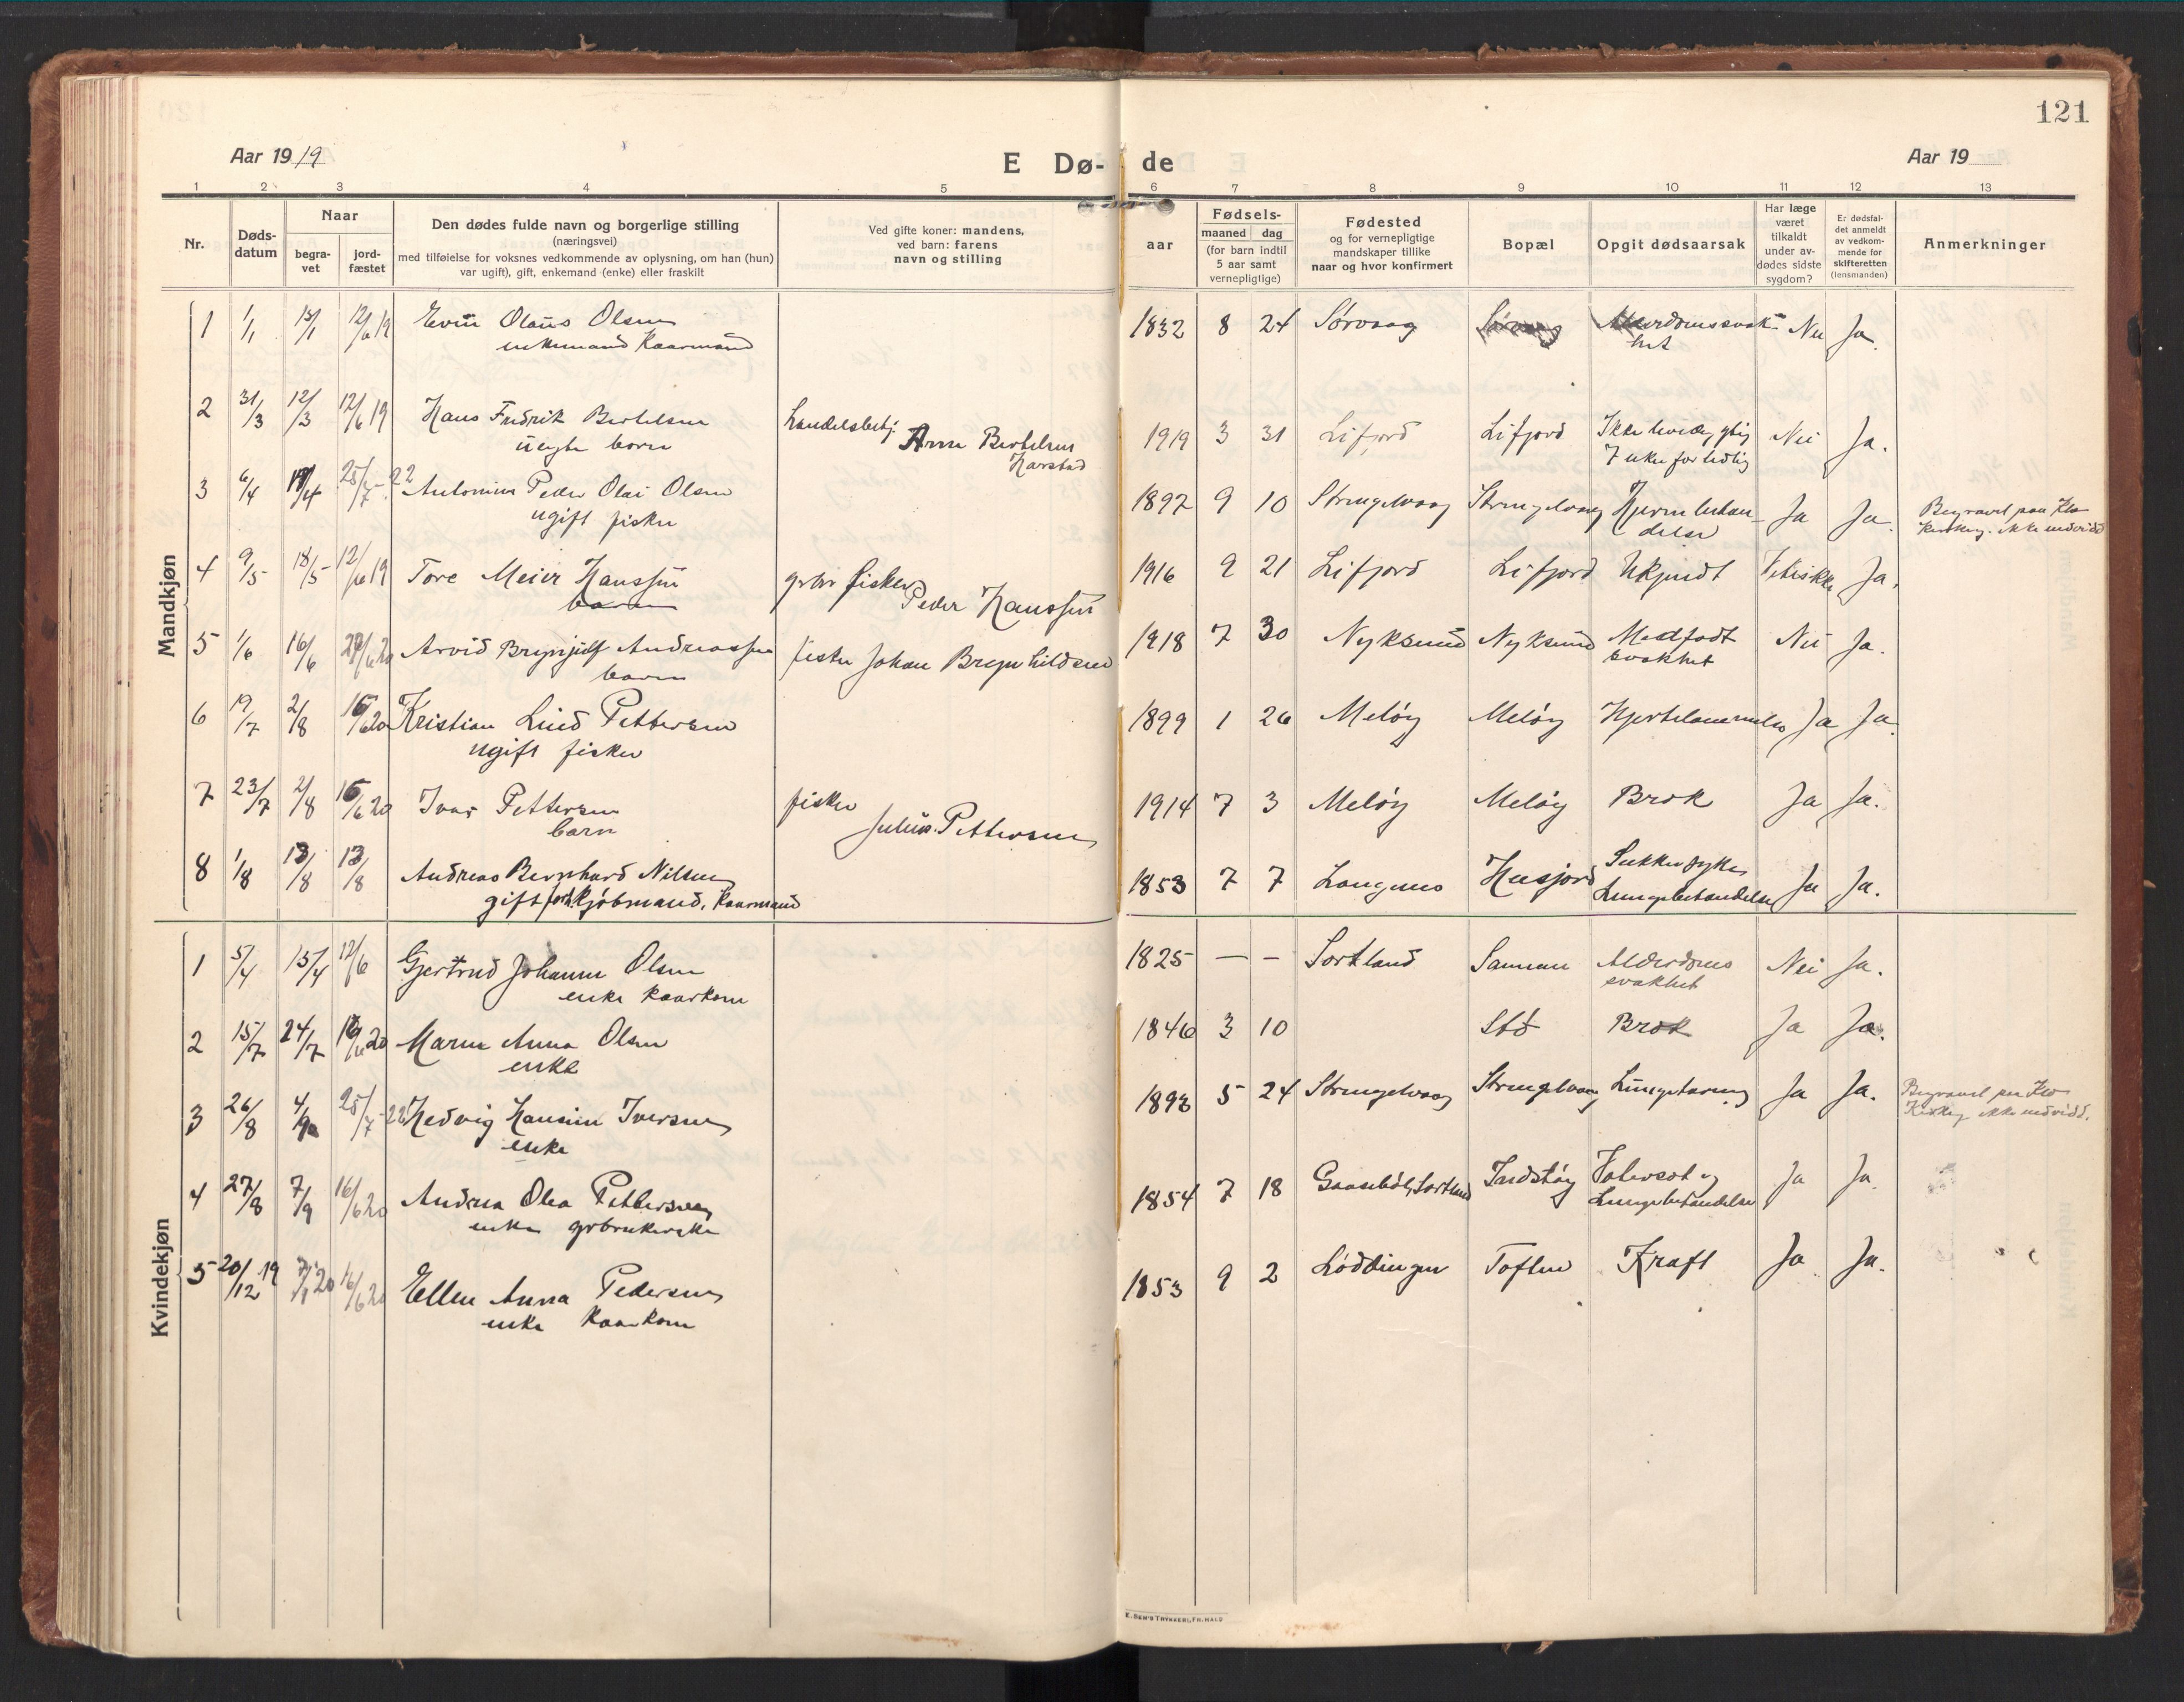 121
Aar 1919
E Dø-
de
Aar 19
1 2 3 4 5 6 7 8 9 10 11 12 13
Nr.
Døds-
datum
Naar
begra-
vet
jord-
fæstet
Den dødes fulde navn og borgerlige stilling
(næringsvei)
med tilføielse for voksnes vedkommende av oplysning, om han (hun)
var ugift), gift, enkemand (enke) eller fraskilt
Ved gifte koner: mandens,
ved barn: farens
navn og stilling
aar
Fødsels-
maaned dag
(for barn indtil
5 aar samt
vernepligtige)
Fødested
og for vernepligtige
mandskaper tillike
naar og hvor konfirmert
Bopæl
Opgit dødsaarsak
Har læge
været
tilkaldt
under av-
dødes sidste
sygdom?
Er dødsfal-
det anmeldt
av vedkom-
mende for
skifteretten
(lensmanden)
Anmerkninger
Mandkjøn
1 1/1 12/6 19 Olaus Olsen 1832 8 24 Sørvaag Nei Ja.
enkemand Kaarmand
2 31/3 12/3 12/6 19 Hans Fredrik Bertelsen 1919 3 31 Lifjord Lifjord Nei Ja.
uegte barn Bertelsen 7 uker for tidlig
Harstad
3 6/4 25/7 22 Peder Olai Olsen 1892 9 10 Strengelvaag Strengelvaag Ja Ja.
ugift fisker ikke indvidd
4 9/5 18/5 12/6 19 Tore Meier Hanssen grbr fisker 1916 9 21 Lifjord Lifjord Ukjendt Ja.
barn Peder Hanssen
5 1/6 16/6 Arvid Andreassen fisker Johan 1918 7 30 Nyksund Nyksund Medfødt Nei Ja.
barn svakhet
6 19/7 2/8 Kristian Pettersen 1899 1 26 Meløy Meløy Hjertelammelse Ja Ja.
ugift fisker
7 23/7 2/8 Ivar Pettersen fisker 1914 7 3 Meløy Meløy Brok Ja Ja.
barn Julius Pettersen
8 1/8 13/8 13/8 Andreas Bernhard Nilsen 1853 7 7 Langenes Husjord Sukkersyke, Ja Ja.
gift forh. Kjøbmand, Kaarmand Lungebetændelse
Kvindekjøn
1 5/4 13/4 12/6 Gjertrud Johanne Olsen 1825 — — Sortland Alderdoms Nei Ja.
enke Kaarkone svakhet
2 15/7 24/7 Anna Olsen 1846 3 10 Stø Brok Ja Ja.
enke
3 26/8 25/7 22 Hedvig Iversen 5 24 Strengelvaag Strengelvaag Lungetæring Ja Ja.
enke ikke indvidd.
4 27/8 7/9 16/6 20 Andrea Olea Pettersen 1854 7 18 Sortland Ja Ja.
enke grbrukerske Lungebetændelse
5 20/12 19 16/6 20 Ellen Anna Pedersen 1853 9 2 Løddingen Toften Kræft Ja Ja.
enke Kaarkone
E. SEM'S TRYKKERI, FR. HALD